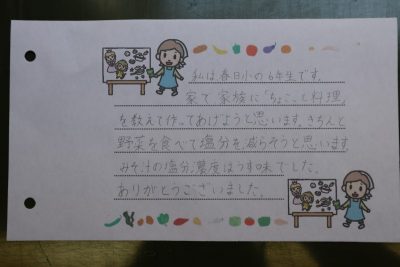 私は、春日小の6年生です。
家で家族に「ちょこっと料理」
を教えて作ってあげようと思います。きちんと
野菜を食べて塩分を減らそうと思います。
みそ汁の塩分濃度はうす味でした。
ありがとうございました。